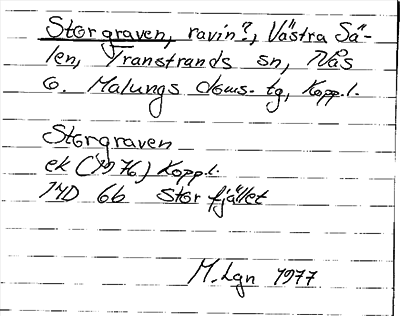 Storgraven, ravin?, Västra Sä-
len, Transtrands sn, Nås
o. Malungs doms. tg, Kopp.l.
Storgraven
ek (1976) Kopp.l.
14D 6b Storfjället
M. Lgn 1977